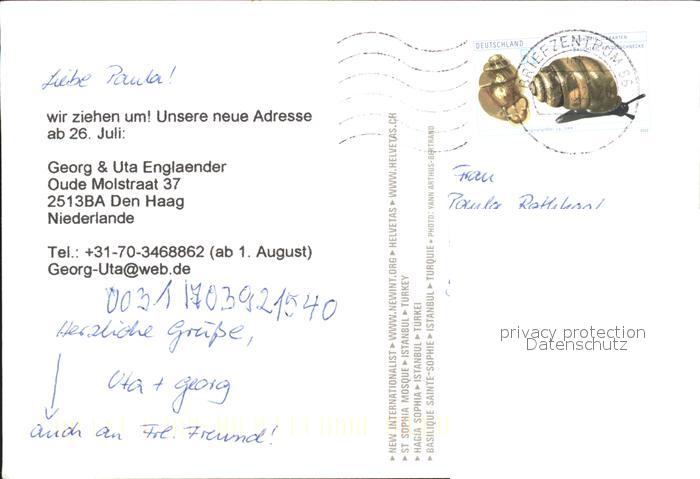 Liebe Paula!
wir ziehen um! Unsere neue Adresse
ab 26. Juli:
Georg & Uta Englaender
Oude Molstraat 37
2513BA Den Haag
Niederlande
Tel.: +31-70-3468862 (ab 1. August)
Georg-Uta@web.de
0031 1703921540
Herzliche Grüße,
Uta + Georg
auch an Frl. Freund!
▸ NEW INTERNATIONALIST ▸ WWW.NEWINT.ORG ▸ HELVETAS ▸ WWW.HELVETAS.CH
▸ ST SOPHIA MOSQUE ▸ ISTANBUL ▸ TURKEY
▸ HAGIA SOPHIA ▸ ISTANBUL ▸ TÜRKEI
▸ BASILIQUE SAINTE-SOPHIE ▸ ISTANBUL ▸ TURQUIE ▸ PHOTO: YANN ARTHUS-BERTRAND
DEUTSCHLAND
BRIEFZENTRUM 56
Frau
Paula
privacy protection
Datenschutz